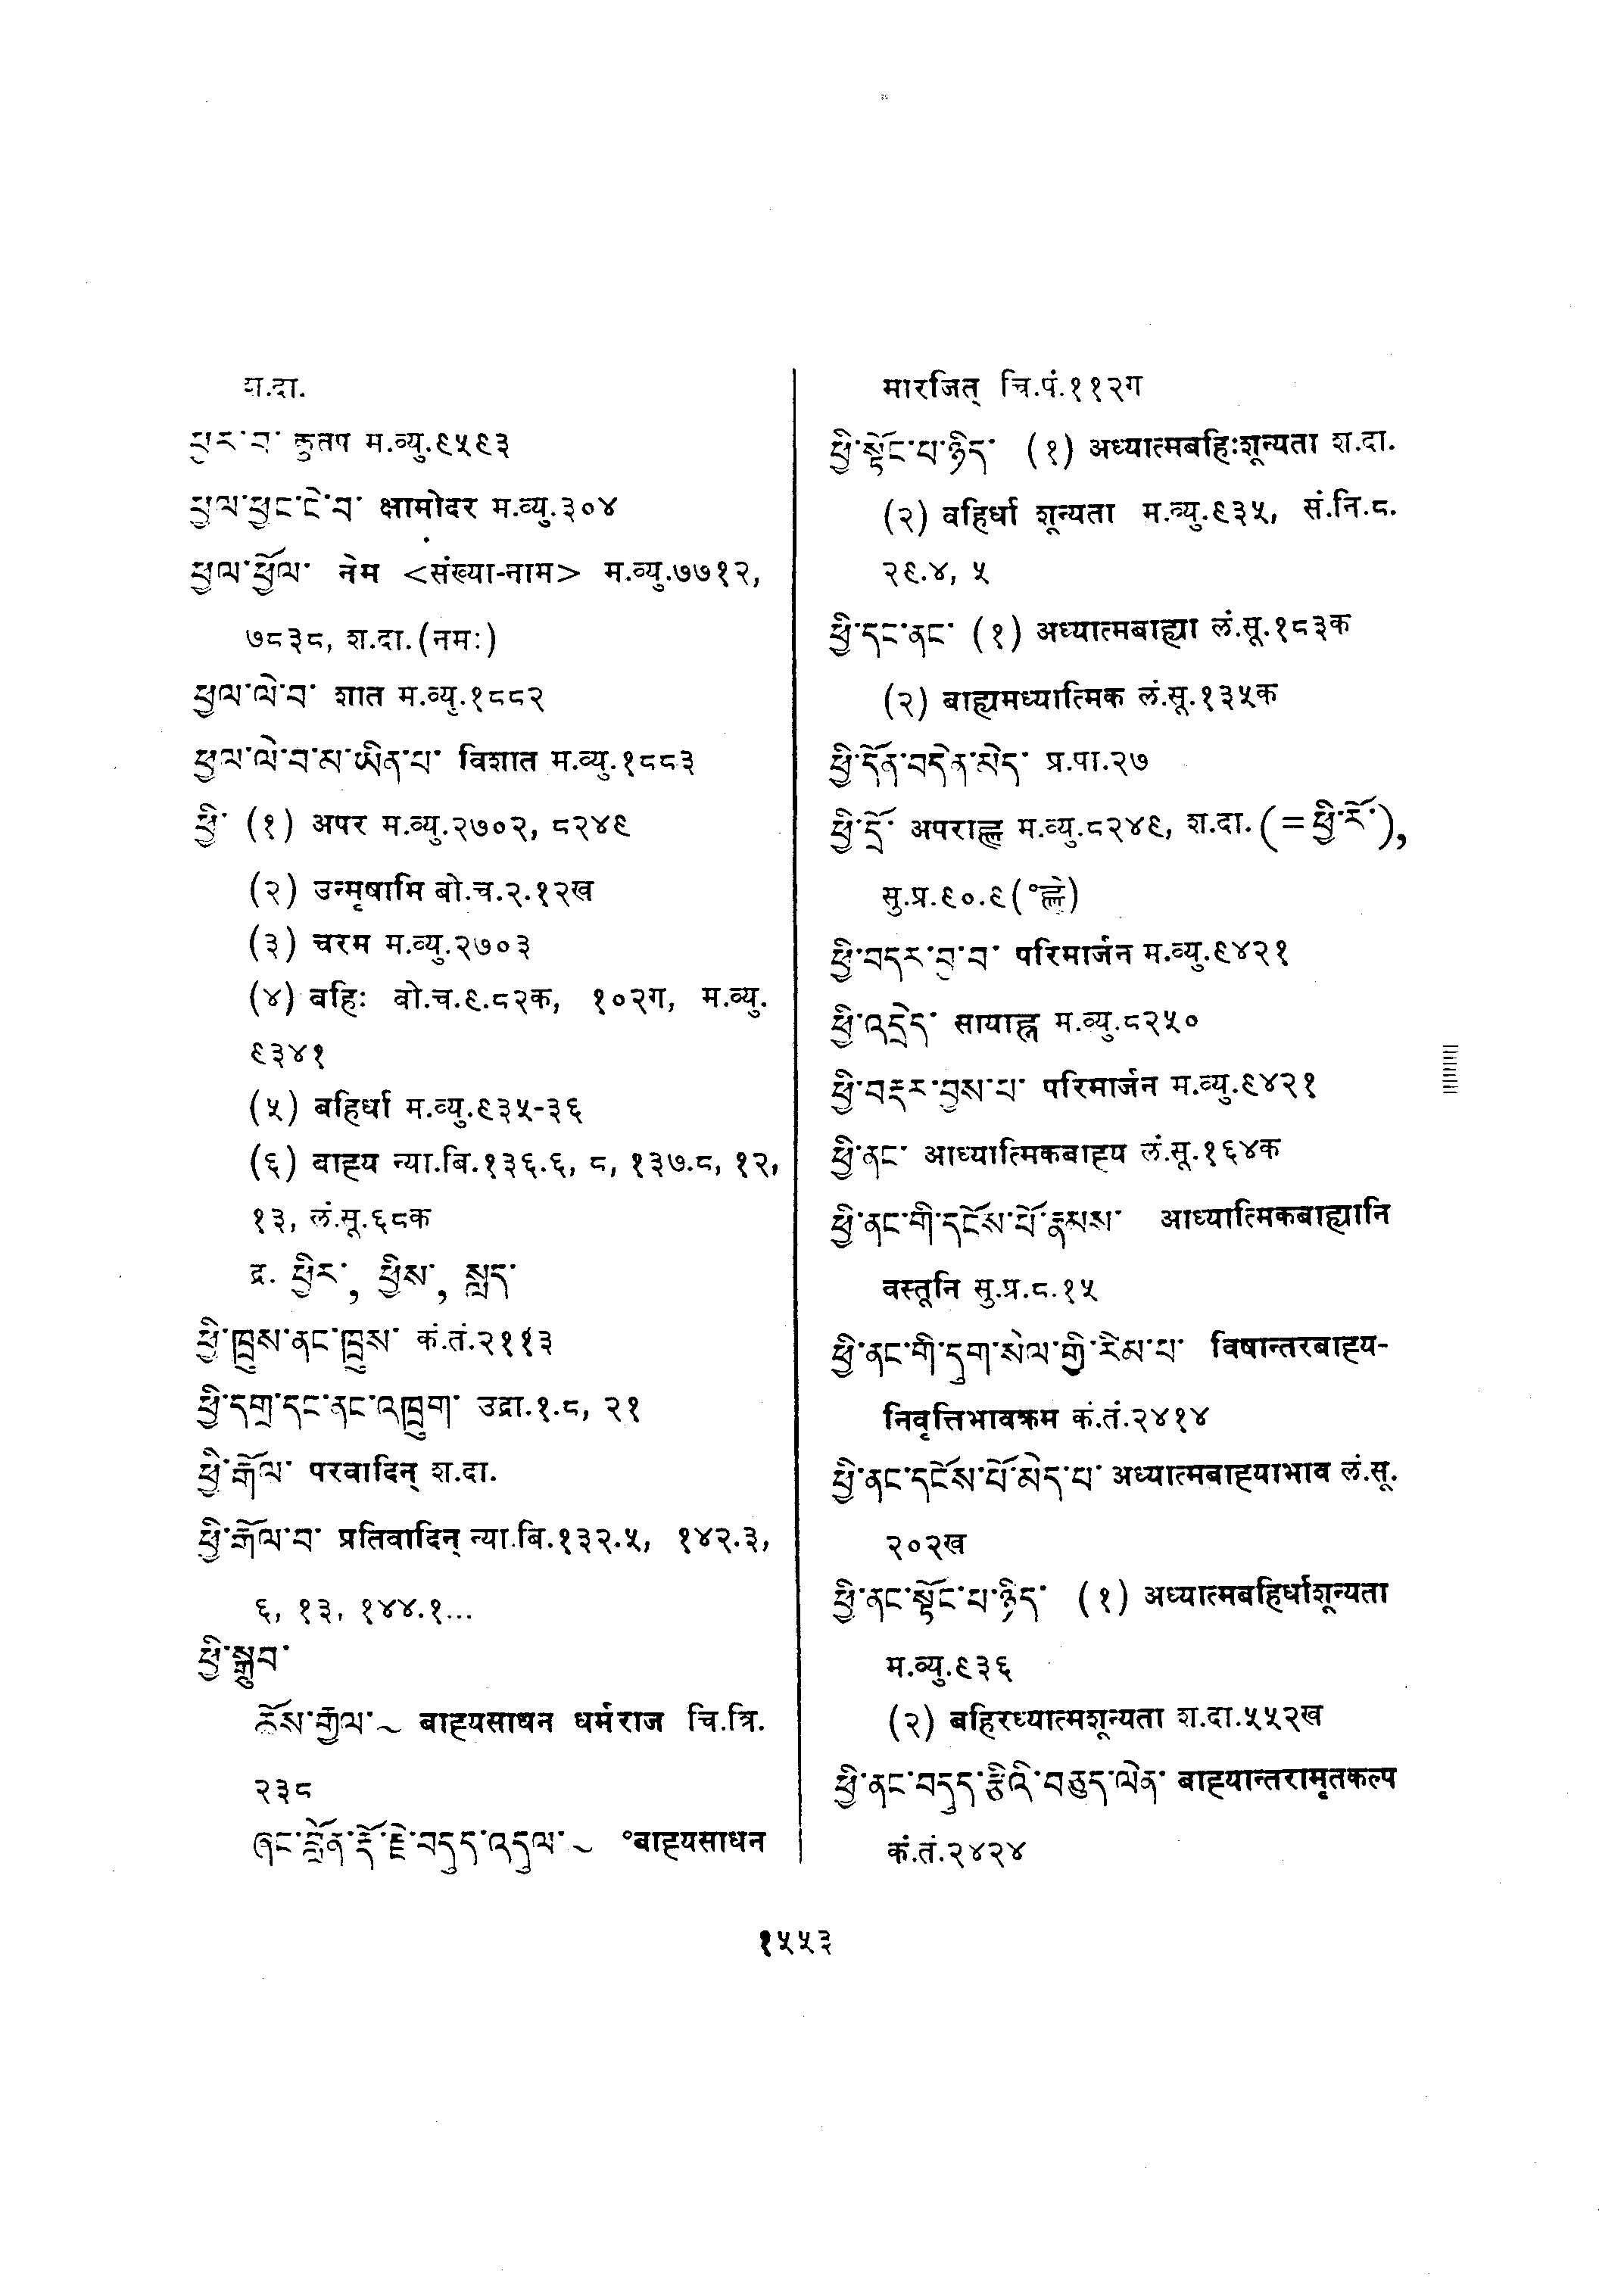 श.दा.
ཕྱར་བ་ कुतप म.व्यु.९५९३
ཕྱལ་ཕྱང་ངེ་བ་ क्षामोदर म.व्यु.३०४
ཕྱལ་ཕྱོལ་ नेम <संख्या-नाम> म.व्यु.७७१२,
७८३८, श.दा.(नमः)
ཕྱལ་ལེ་བ་ शात म.व्यु.१८८२
ཕྱལ་ལེ་བ་མ་ཡིན་པ་ विशात म.व्यु.१८८३
ཕྱི་ (१) अपर म.व्यु.२७०२, ८२४९
(२) उन्मृषामि बो.च.२.१२ख
(३) चरम म.व्यु.२७०३
(४) बहिः बो.च.९.८२क, १०२ग, म.व्यु.
९३४१
(५) बहिर्धा म.व्यु.९३५-३६
(६) बाह्य न्या.बि.१३६.६, ८, १३७.८, १२,
१३, लं.सू.६८क
द्र. ཕྱིར་, ཕྱིས་, སླད་
ཕྱི་ཁྲུས་ནང་ཁྲུས་ कं.तं.२११३
ཕྱི་དགྲ་དང་ནང་འཁྲུག་ उद्रा.१.८, २१
ཕྱི་རྒོལ་ परवादिन् श.दा.
ཕྱི་རྒོལ་བ་ प्रतिवादिन् न्या.बि.१३२.५, १४२.३,
६, १३, १४४.१...
ཕྱི་སྒྲུབ་
ཆོས་རྒྱལ་~ बाह्यसाधन धर्मराज चि.त्रि.
२३८
ཞང་བློན་རྡོ་རྗེ་བདུད་འདུལ་~ °बाह्यसाधन
मारजित् चि.पं.११२ग
ཕྱི་སྟོང་པ་ཉིད་ (१) अध्यात्मबहिःशून्यता श.दा.
(२) बहिर्धा शून्यता म.व्यु.९३५, सं.नि.८.
२९.४, ५
ཕྱི་དང་ནང་ (१) अध्यात्मबाह्या लं.सू.१८३क
(२) बाह्यमध्यात्मिक लं.सू.१३५क
ཕྱི་དོན་བདེན་མེད་ प्र.पा.२७
ཕྱི་དྲོ་ अपराह्ण म.व्यु.८२४९, श.दा.(=ཕྱི་རོ་),
सु.प्र.९०.९(°ह्णे)
ཕྱི་བདར་བྱ་བ་ परिमार्जन म.व्यु.९४२१
ཕྱི་འདྲེད་ सायाह्न म.व्यु.८२५०
ཕྱི་བརྡར་བྱས་པ་ परिमार्जन म.व्यु.९४२१
ཕྱི་ནང་ आध्यात्मिकबाह्य लं.सू.१६४क
ཕྱི་ནང་གི་དངོས་པོ་རྣམས་ आध्यात्मिकबाह्यानि
वस्तूनि सु.प्र.८.१५
ཕྱི་ནང་གི་དུག་སེལ་གྱི་རིམ་པ་ विषान्तरबाह्य-
निवृत्तिभावक्रम कं.तं.२४१४
ཕྱི་ནང་དངོས་པོ་མེད་པ་ अध्यात्मबाह्याभाव लं.सू.
२०२ख
ཕྱི་ནང་སྟོང་པ་ཉིད་ (१) अध्यात्मबहिर्धाशून्यता
म.व्यु.९३६
(२) बहिरध्यात्मशून्यता श.दा.५५२ख
ཕྱི་ནང་བདུད་རྩིའི་བཅུད་ལེན་ बाह्यान्तरामृतकल्प
कं.तं.२४२४
१५५३